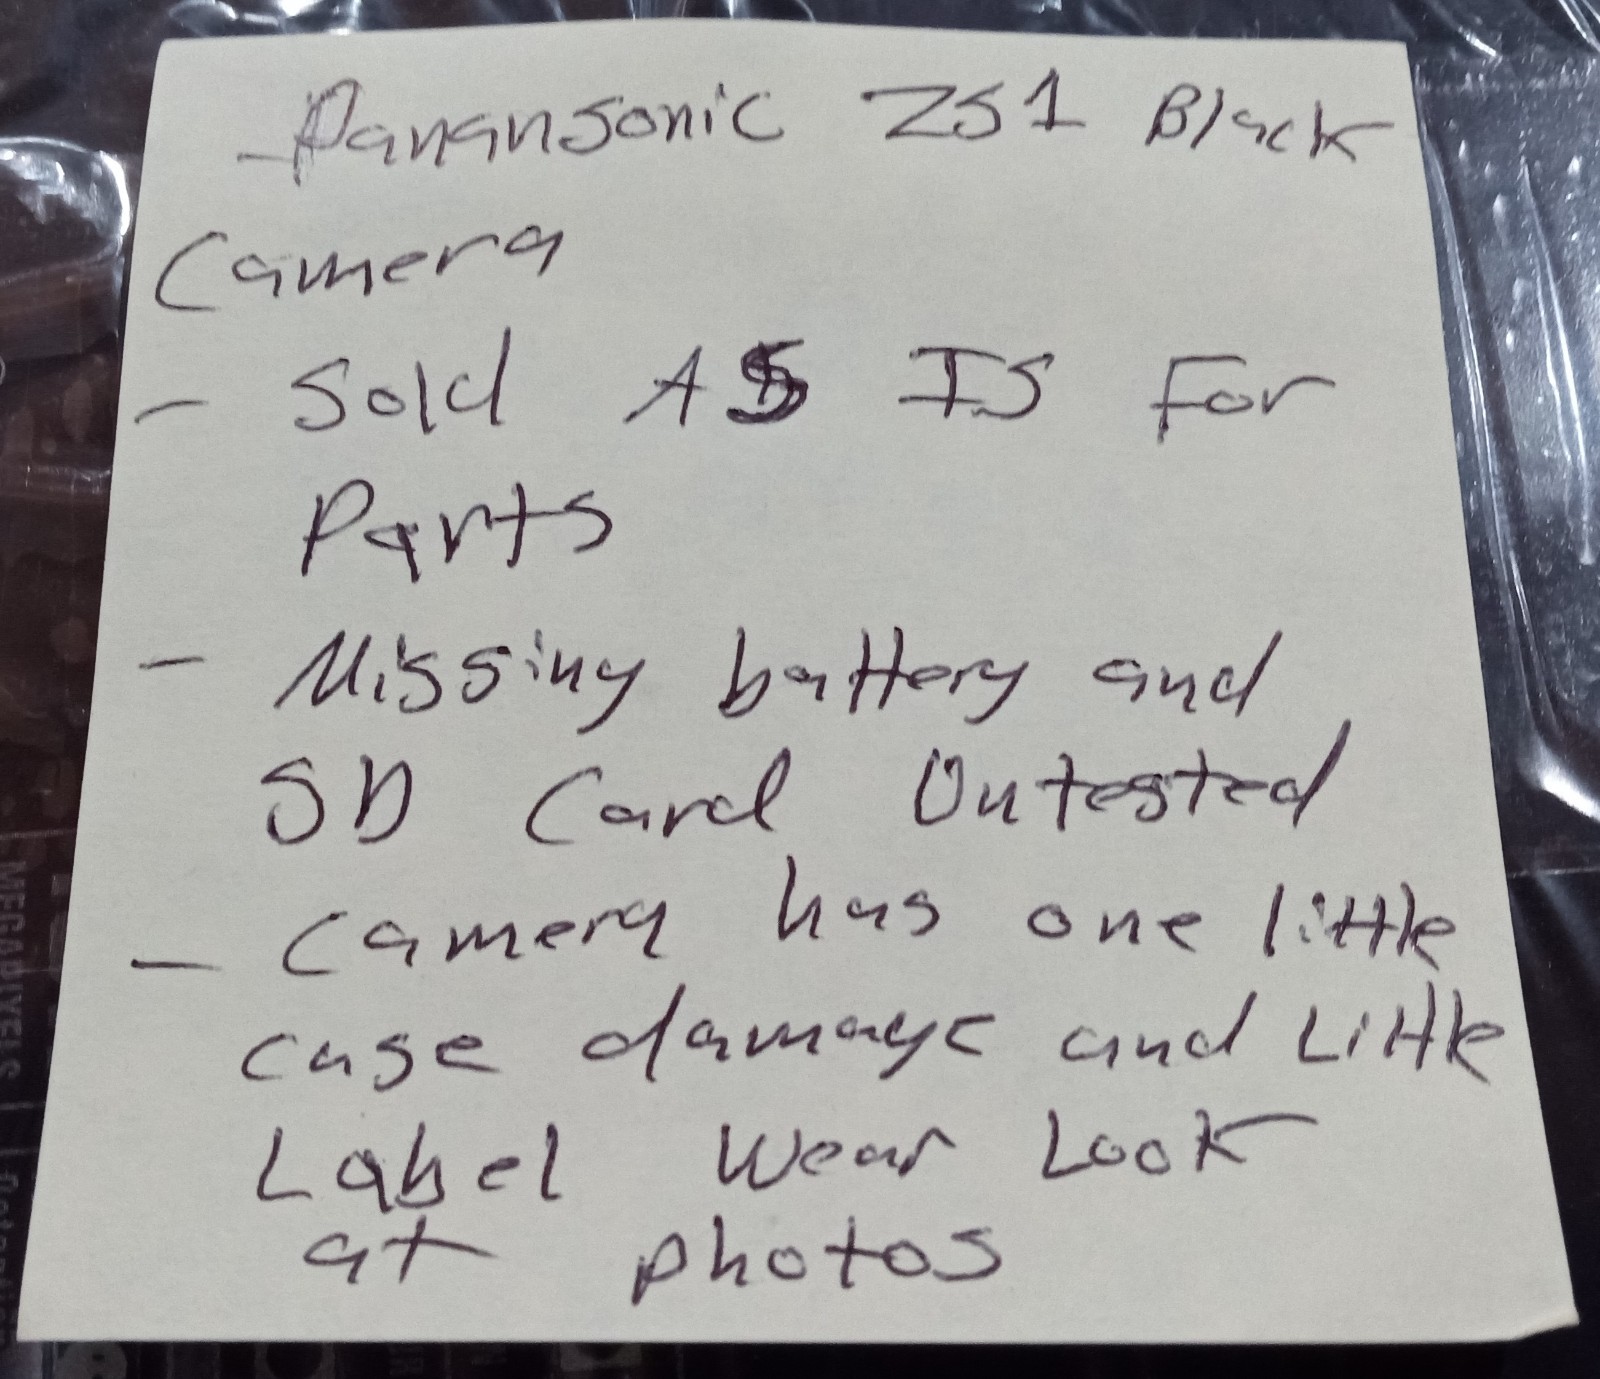 - Panansonic ZS1 Black
Camera
- Sold AS IS For
Parts
- Missing battery and
SD Card Untested
- Camera has one little
case damage and Little
Label Wear Look
at photos
MEGAPIXELS